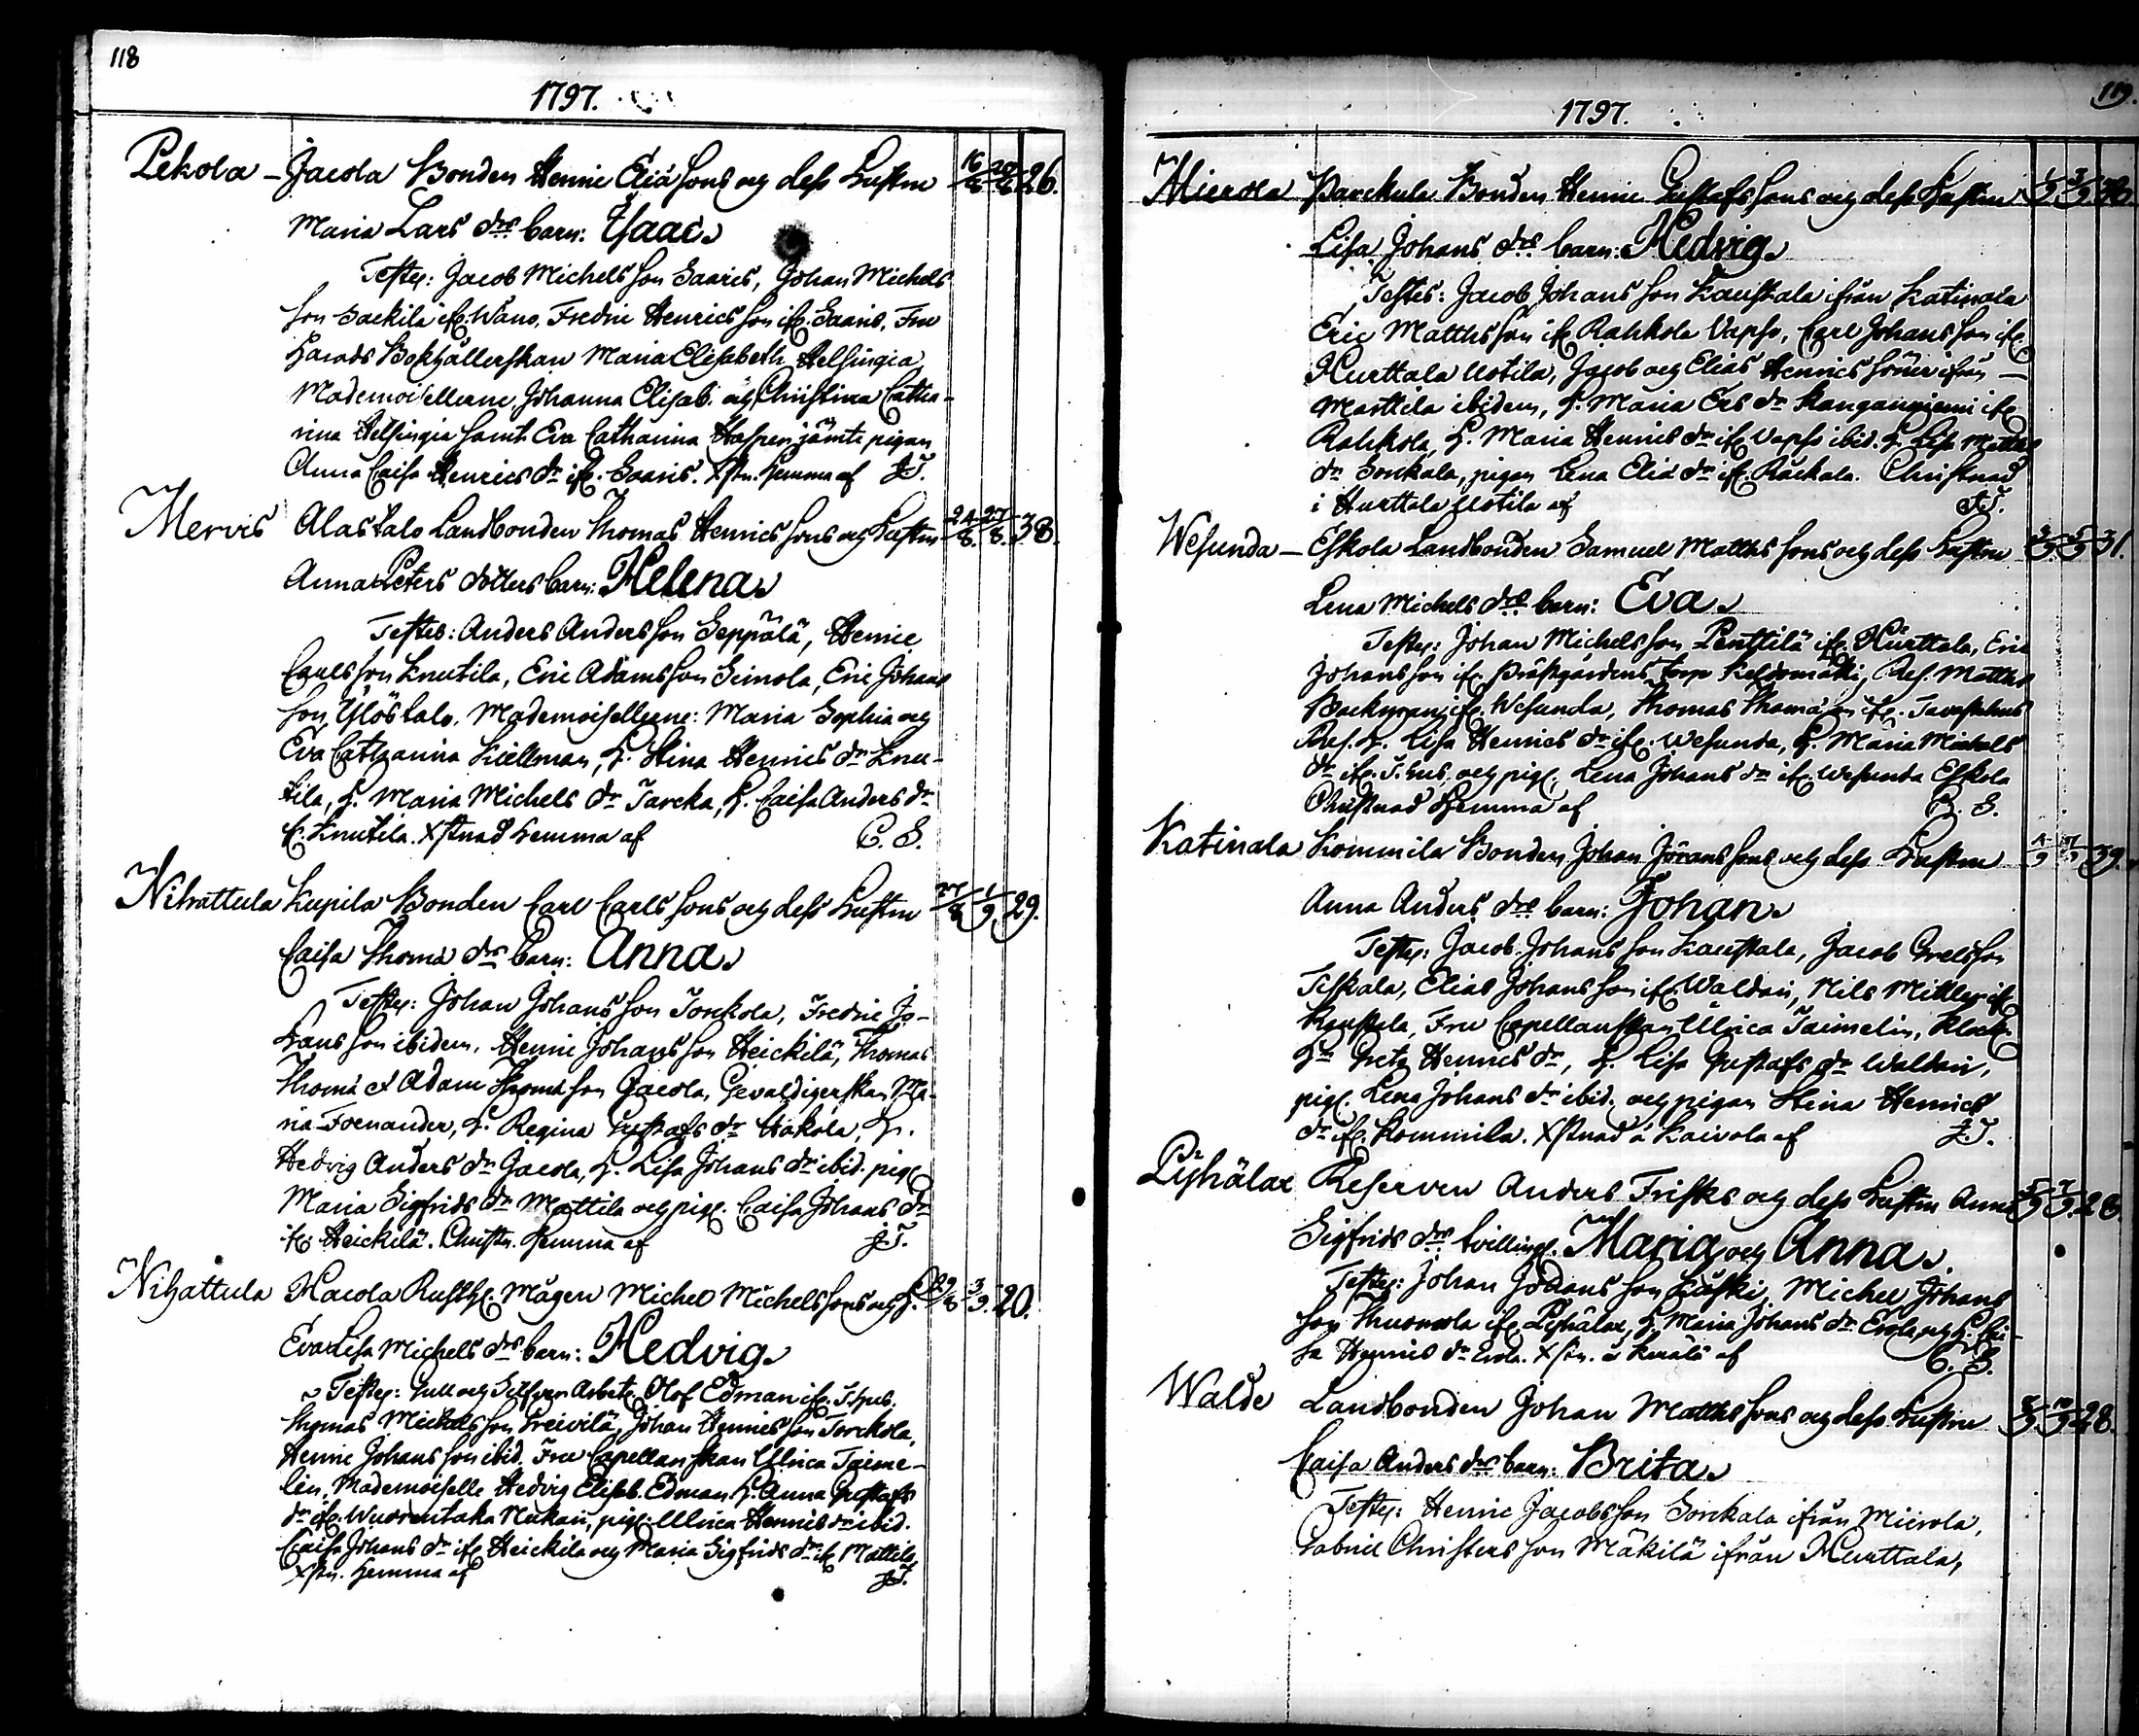 118
1797.
Pekola - Jacola Bonden Henric Eliæ sons och dess hustru 16/8 20/8 26.
Maria Lars drs barn: Isaac
Testes: Jacob Michels son Saaris, Johan Michels
son Backila ifr. Wåno, Fredric Henrics son ifr. Saaris, Fru
Härads Bokhållerskan Maria Elisabeth Helsingia
Mademoisellerne Johanna Elisab. och Christina Catha-
rina Helsingia samt Eva Catharina jämte pigan
Anna Caisa Henrics dr ifr. Saaris. Xstn. hemma af J.T.
Mervis Alastalo Landbonden Thomas Henrics sons och hustru 24/8. 27/8. 38.
Anna Peters dotters barn: Helena
Testes: Anders Anders son Seppälä, Henric
Carls son Knutila, Eric Adams son Simola, Eric Johans
son Ylöstalo. Mademoisellerne: Maria Sophia och
Eva Catharina Kiellman, h. Stina Henrics dr Knu-
tila, h. Maria Michels dr Jarcka, h. Caisa Anders dr
f. Knutila. Xstnad hemma af C. S.
Nihattula Kupila Bonden Carl Carls sons och dess hustru 27/8 1/9 29.
Caisa Thomæ drs barn: Anna
Testes: Johan Johans son Torkola, Fredric Jo-
hans son ibidem, Henric Johans son Heickilä, Thomas
Thomæ et Adam Thomæ son Jacola, Gevaldigerskan Ma-
ria Forenander, h. Regina Gustafs dr Hakola, h.
Hedvig Anders dr Jacola, h. Lisa Johans dr ibid. pig.
Maria Sigfrids dr Mattila och pig. Caisa Johans dr
ifr. Heickilä. Christn. hemma af J.T.
Nihattula Hacola Rusth. Mågen Michel Michels sons och h. 29/8 3/9. 20.
Eva Lisa Michels drs barn: Hedvig
Testes: Gull och Silfver Arbet. Olof Edman ifr. T.hus.
Thomas Michels son Preivilä, Johan Henrics son Torckola,
Henric Johans son ibid. Fru Capellanskan Ulrica Taime-
lin, Mademoiselle Hedvig Elisab. Edman h. Anna Gustafs
dr ifr. Wuorentaka Nukari, pig. Ulrica Henrics dr ibid.
Caisa Johans dr ifr. Heickilä och Maria Sigfrids dr ifr. Mattila
Xstn. hemma af J.T.
119.
1797.
Mierola Parckula Bonden Henric Gustafs sons och dess hustru 1/9 3/9
Lisa Johans drs barn: Hedvig
Testes: Jacob Johans son Kauskala ifrån Katinala
Eric Matths son ifr. Rahkola Vapso, Carl Johans son ifr.
Hurttala Uotila, Jacob och Elias Henrics söner ifrån
Marttila ibidem, h. Maria Ers dr Kanganniemi ifr.
Rahkola, h. Maria Henrics dr ifr. Vapso ibid. h. Lisa Matths
dr Sorckala, pigan Lena Eliæ dr ifr. Christnad
i Hurttala Uotila af J.T.
Wesunda - Eskola Landbonden Samuel Matths sons och dess hustru 5/9 31.
Lena Michels drs barn: Eva
Testes: Johan Michels son Penttilä ifr. Hurttala, Eric
Johans son ifr. Prästgårdens torp Res. Matths
ifr. Wesunda, Thomas Thomæ son ifr. Tavastehus
Res. h. Lisa Henrics dr ifr. Wesunda, h. Maria Michels
dr ifr. T.hus. och pig. Lena Johans dr ifr. Wesunda Eskola
Christnad hemma af C. S.
Katinala Kommila Bonden Johan Jörans sons och dess hustru 4/9 39.
Anna Anders drs barn: Johan
Testes: Jacob Johans son Kauskala, Jacob Grels son
Teskala, Elias Johans son ifr. Waldari, Nils Miller ifr.
Fru Capellanskan Ulrica Taimelin, Klock.
h. Greta Henrics dr, h. Lisa Gustafs dr Waldari,
pig. Lena Johans dr ibid. och pigan Stina Henrics
dr ifr. Kommila. Xstnad å Kaivola af J.T.
Lyhälax Reserven Anders Frisks och dess hustru Anna 5/9 7/9. 28.
Sigfrids drs tvilling. Maria och Anna
Testes: Johan Johans son Michel Johans
son ifr. Lyhälax, h. Maria Johans dr Erola och h. Cai-
sa Henrics dr Erola. Xstn. å Kerälä af C. S.
Walde Landbonden Johan Matths sons och dess hustru 8/9 10/9 28.
Caisa Anders drs barn: Brita
Testes: Henric Jacobs son Sorckala ifrån Mierola,
Gabriel Christers son Mäkilä ifrån Hurttala,